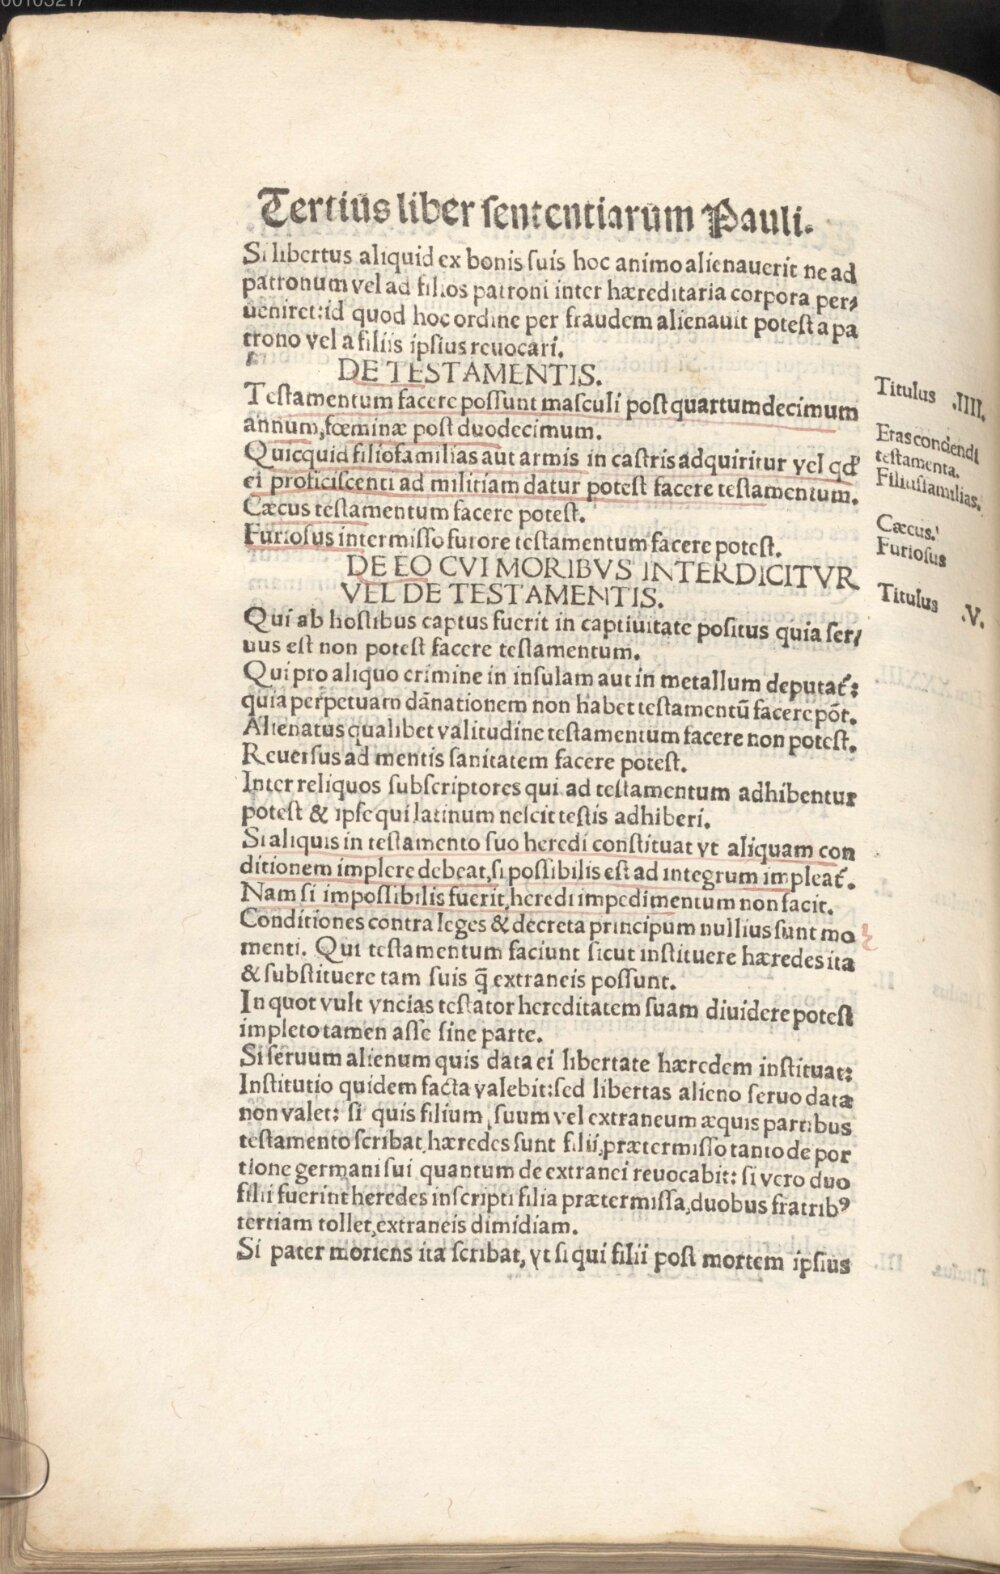 00103217
Tertius liber sententiarum Pauli.
Si libertus aliquid ex bonis suis hoc animo alienauerit ne ad
patronum vel ad filios patroni inter hæreditaria corpora per/
ueniret: id quod hoc ordine per fraudem alienauit potest a pa
trono vel a filiis ipsius reuocari.
DE TESTAMENTIS.
Titulus .IIII.
Testamentum facere possunt masculi post quartumdecimum
annum, fœminæ post duodecimum.
Etas condendi
testamenta.
Quicquid filiofamilias aut armis in castris adquiritur vel qđ
ei proficiscenti ad militiam datur potest facere testamentum.
Filiusfamilias.
Cæcus testamentum facere potest.
Cæcus.
Furiosus intermisso furore testamentum facere potest.
Furiosus
DE EO CVI MORIBVS INTERDICITVR
VEL DE TESTAMENTIS.
Titulus .V.
Qui ab hostibus captus fuerit in captiuitate positus quia ser/
uus est non potest facere testamentum.
Qui pro aliquo crimine in insulam aut in metallum deputat̃:
quia perpetuam dãnationem non habet testamentũ facere põt.
Alienatus qualibet valitudine testamentum facere non potest.
Reuersus ad mentis sanitatem facere potest.
Inter reliquos subscriptores qui ad testamentum adhibentur
potest & ipse qui latinum nescit testis adhiberi.
Si aliquis in testamento suo heredi constituat vt aliquam con
ditionem implere debeat, si possibilis est ad integrum impleat̃.
Nam si impossibilis fuerit, heredi impedimentum non facit.
Conditiones contra leges & decreta principum nullius sunt mo
menti. Qui testamentum faciunt sicut instituere hæredes ita
& substituere tam suis q̃ extraneis possunt.
In quot vult vncias testator hereditatem suam diuidere potest
impleto tamen asse sine parte.
Si seruum alienum quis data ei libertate hæredem instituat:
Institutio quidem facta valebit: sed libertas alieno seruo data
non valet: si quis filium suum vel extraneum æquis partibus
testamento scribat, hæredes sunt filii, prætermisso tanto de por
tione germani sui quantum de extranei reuocabit: si vero duo
filii fuerint heredes inscripti filia prætermissa, duobus fratribꝰ
tertiam tollet, extraneis dimidiam.
Si pater moriens ita scribat, vt si qui filii post mortem ipsius